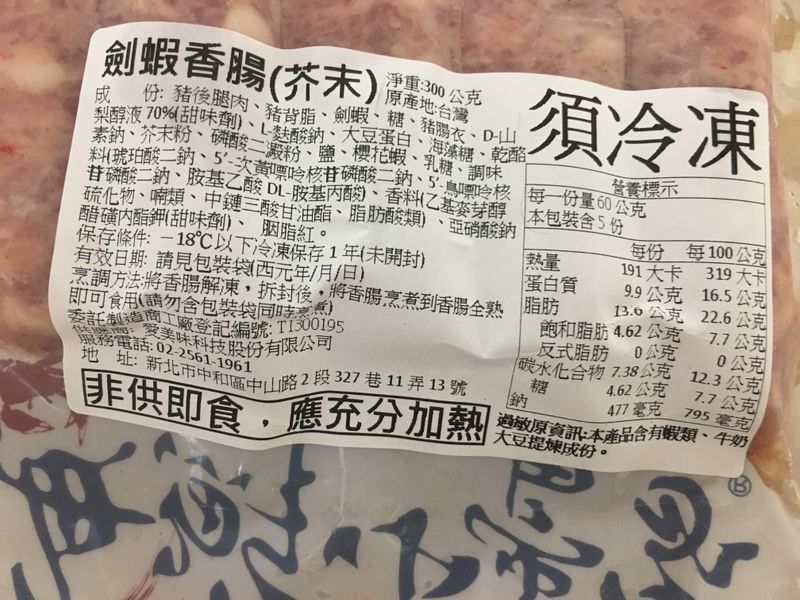 劍蝦香腸(芥末)
淨重:300 公克
原產地:台灣
成　份: 豬後腿肉、豬背脂、劍蝦、糖、豬腸衣、D-山
梨醇液 70%(甜味劑)、L-麩酸鈉、大豆蛋白、海藻糖、乾酪
素鈉、芥末粉、磷酸二澱粉、鹽、櫻花蝦、乳糖、調味
料(琥珀酸二鈉、5'-次黃嘌呤核苷磷酸二鈉、5'-鳥嘌呤核
苷磷酸二鈉、胺基乙酸 DL-胺基丙酸)、香料(乙基麥芽醇
硫化物、喃類、中鏈三酸甘油酯、脂肪酸類)、亞硝酸鈉
醋磺內酯鉀(甜味劑)、 胭脂紅。
保存條件: －18℃以下冷凍保存 1 年(未開封)
有效日期: 請見包裝袋(西元年/月/日)
烹調方法:將香腸解凍，拆封後，將香腸烹煮到香腸全熟
即可食用(請勿含包裝袋同時烹煮)
委託製造商工廠登記編號: T1300195
供應商: 愛美味科技股份有限公司
服務電話:02-2561-1961
地　址: 新北市中和區中山路 2 段 327 巷 11 弄 13 號
非供即食，應充分加熱
須冷凍
營養標示
每一份量 60 公克
本包裝含 5 份
每份 每 100 公克
熱量 191 大卡 319 大卡
蛋白質 9.9 公克 16.5 公克
脂肪 13.6 公克 22.6 公克
飽和脂肪 4.62 公克 7.7 公克
反式脂肪 0 公克 0 公克
碳水化合物 7.38 公克 12.3 公克
糖 4.62 公克 7.7 公克
鈉 477 毫克 795 毫克
過敏原資訊:本產品含有蝦類、牛奶
大豆提煉成份。
®